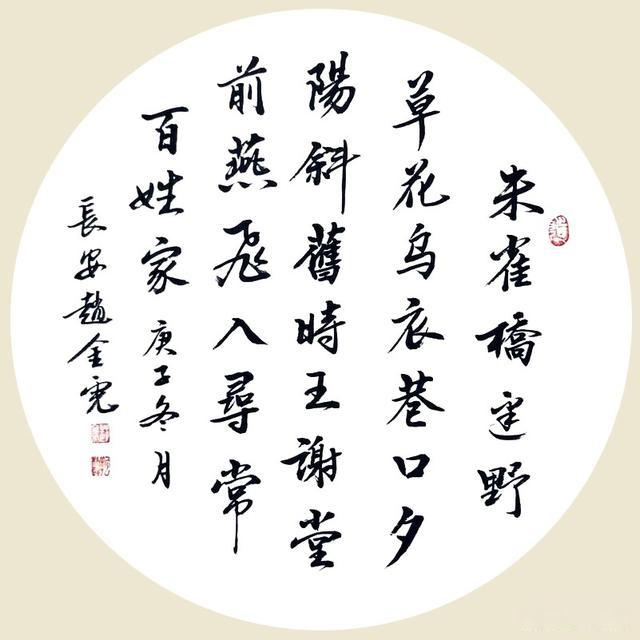 朱雀橋邊野
草花烏衣巷口夕
陽斜舊時王謝堂
前燕飛入尋常
百姓家 庚子冬月
長安趙金